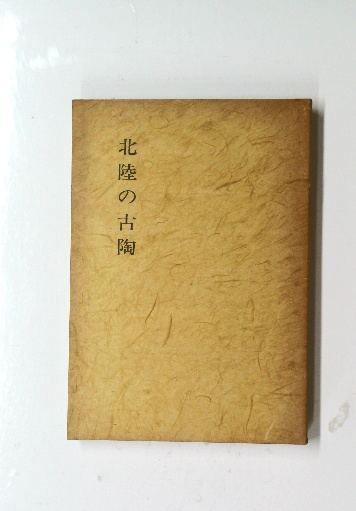 北陸の古陶